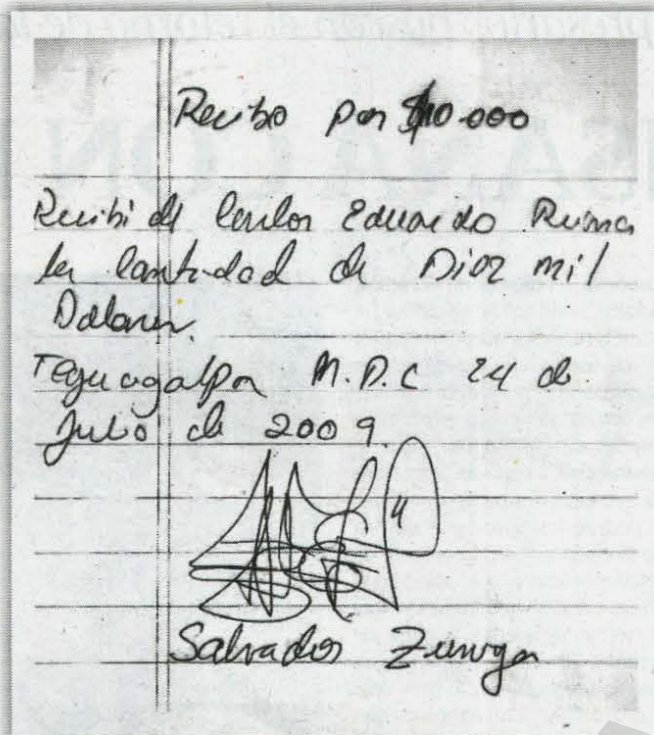 Recibo por $10.000
Recibi de Carlos Eduardo Reina
la Cantidad de Diez mil
Dolares.
Tegucigalpa M.D.C 24 de
Julio de 2009.
Salvador Zuniga